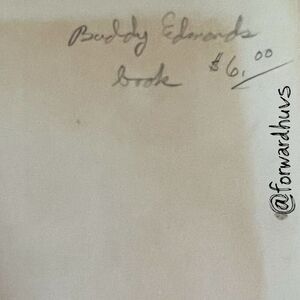 Buddy Edmonds
book $6.00
@forwardhuvs